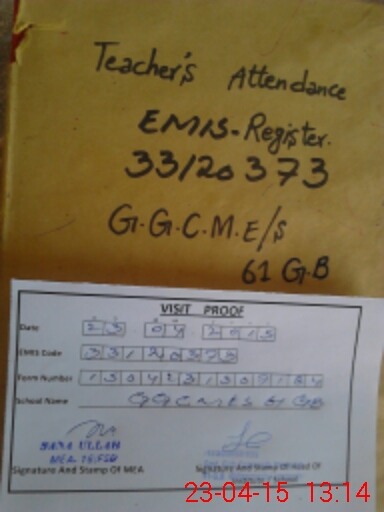 Teacher's Attendance
EMIS-Register.
33120373
G.G.C.M.E/S
61 G.B
VISIT PROOF
Date 23 04 2015
EMIS Code 33120373
Form Number
School Name GGCMES 61 GB
SANA ULLAH
MEA
Signature And Stamp Of MEA
Signature And Stamp Of Head Of
Institute / School
23-04-15 13:14